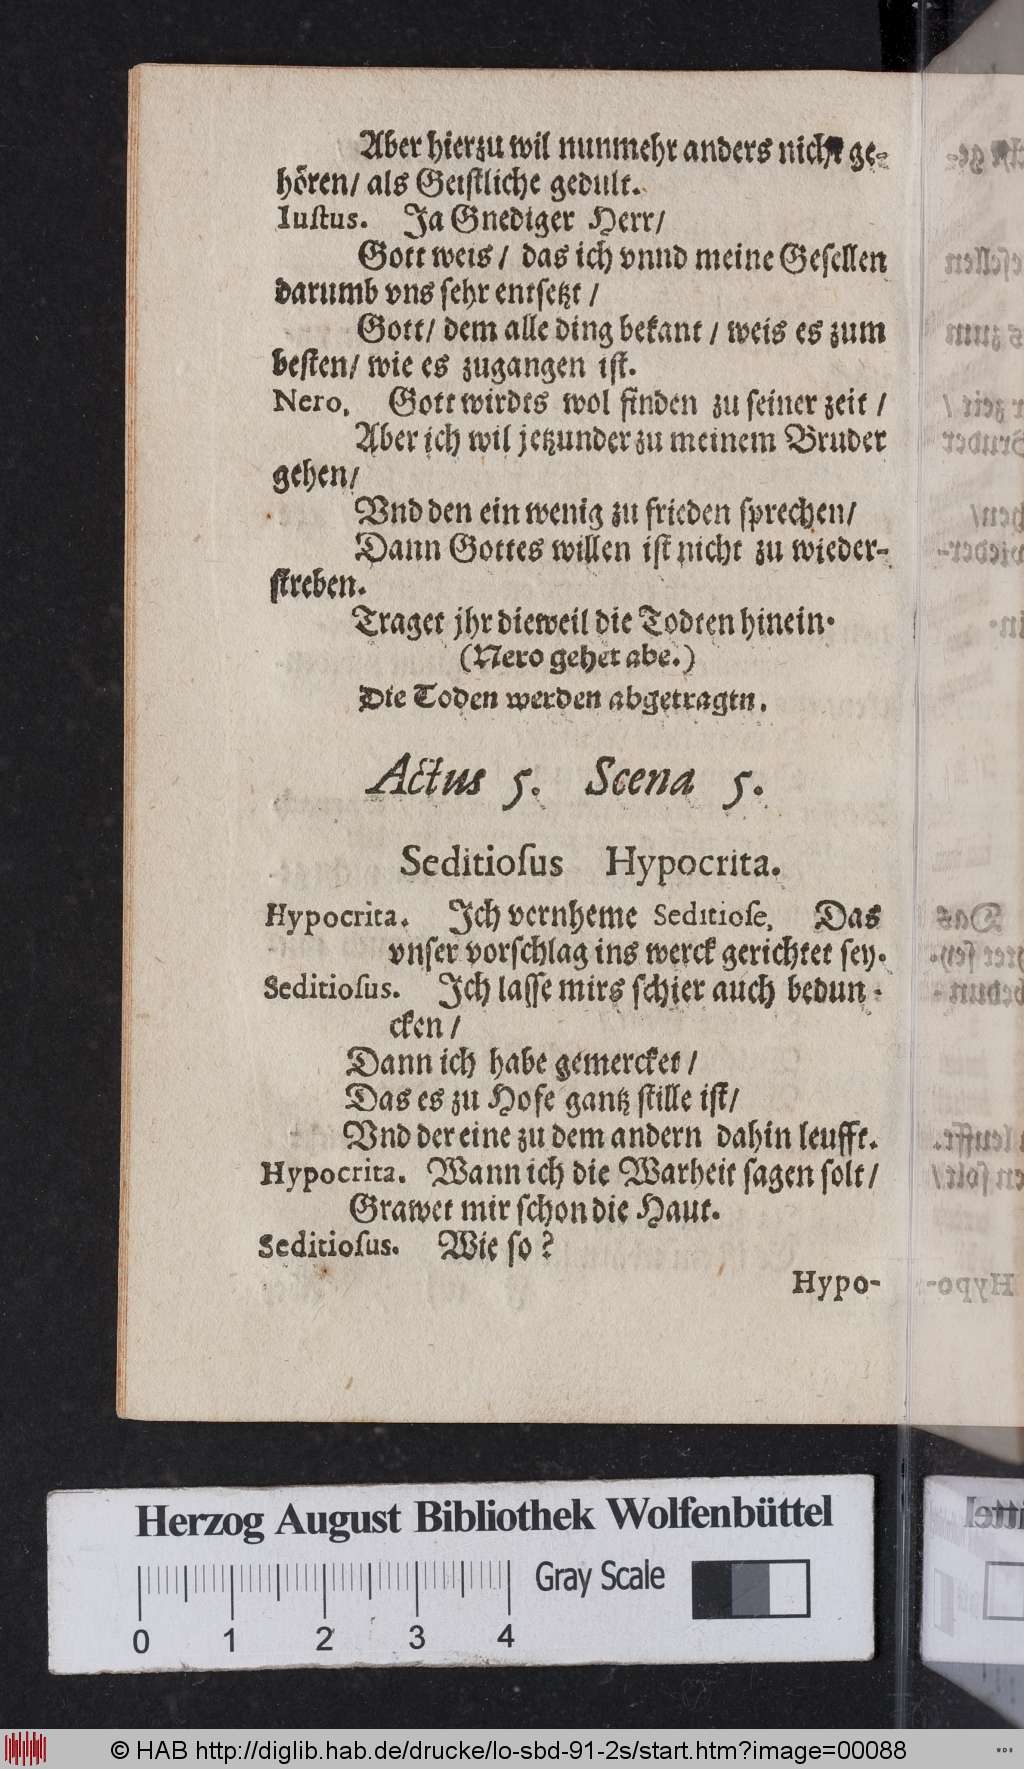 Aber hierzu wil nunmehr anders nicht ge-
hören/ als Geistliche gedult.
Iuſtus. Ja Gnediger Herr/
Gott weis / das ich vnnd meine Geſellen
darumb vns ſehr entſetzt /
Gott/ dem alle ding bekant / weis es zum
beſten/ wie es zugangen iſt.
Nero, Gott wirdts wol finden zu ſeiner zeit /
Aber ich wil jetzunder zu meinem Bruder
gehen/
Vnd den ein wenig zu frieden ſprechen/
Dann Gottes willen iſt nicht zu wieder-
ſtreben.
Traget jhr dieweil die Todten hinein.
(Nero gehet abe.)
Die Toden werden abgetragen.
Actus 5. Scena 5.
Seditioſus Hypocrita.
Hypocrita. Ich vernheme Seditioſe, Das
vnſer vorſchlag ins werck gerichtet ſey.
Seditioſus. Ich laſſe mirs ſchier auch bedun-
cken /
Dann ich habe gemercket /
Das es zu Hofe gantz ſtille iſt/
Vnd der eine zu dem andern dahin leufft.
Hypocrita. Wann ich die Warheit ſagen ſolt /
Grawet mir ſchon die Haut.
Seditioſus. Wie ſo ?
Hypo-
Herzog August Bibliothek Wolfenbüttel
Gray Scale
0 1 2 3 4
© HAB http://diglib.hab.de/drucke/lo-sbd-91-2s/start.htm?image=00088